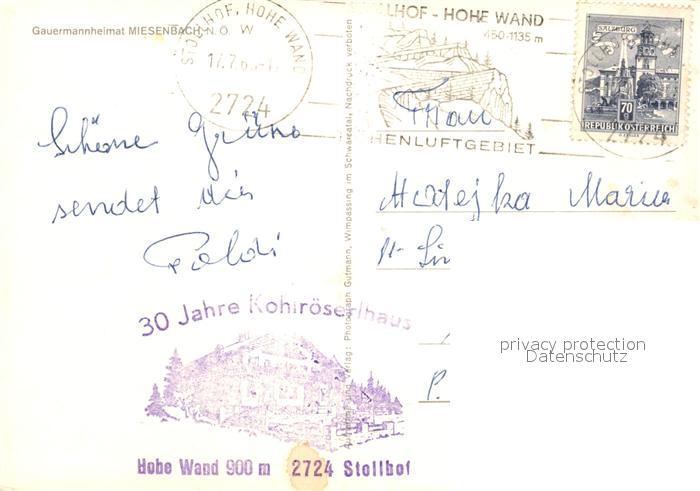 Gauermannheimat MIESENBACH, N. Ö.
STOLLHOF, HOHE WAND
2724
LLHOF - HOHE WAND
450-1135 m
HENLUFTGEBIET
SALZBURG
70
REPUBLIK ÖSTERREICH
Schöne Grüße
sendet dir
Poldi
Frau
Matejka Maria
P.
Verlag: Photograph Gutmann, Wimpassing im Schwarzatal, Nachdruck verboten
30 Jahre Kohlröserlhaus
Hohe Wand 900 m 2724 Stollhof
privacy protection
Datenschutz